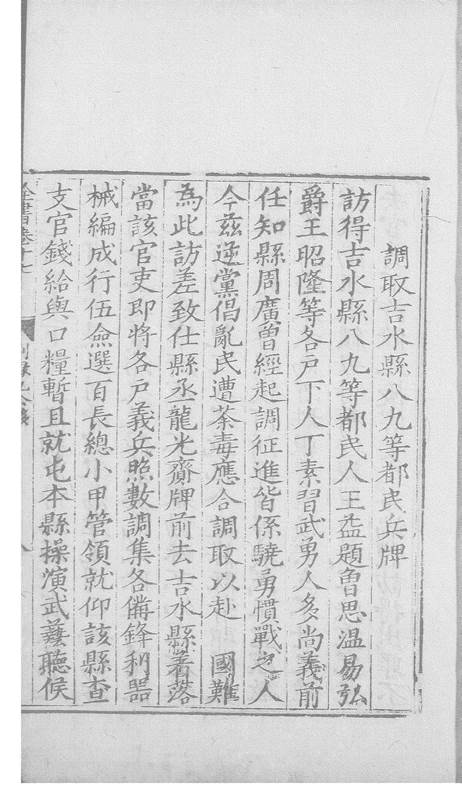 調取吉水縣八九等都民兵牌
訪得吉水縣八九等都民人王益題曾思温易弘
爵王昭隆等各户下人丁素習武勇人多尚義前
任知縣周廣曾經起調征進皆係驍勇慣戰之人
今兹逆黨倡亂民遭荼毒應合調取以赴　國難
為此訪差致仕縣丞龍光齎牌前去吉水縣着落
當該官吏即將各户義兵照數調集各備鋒利器
械編成行伍僉選百長總小甲管領就仰該縣查
支官錢給與口糧暫且就屯本縣操演武藝聽候
全書卷十七